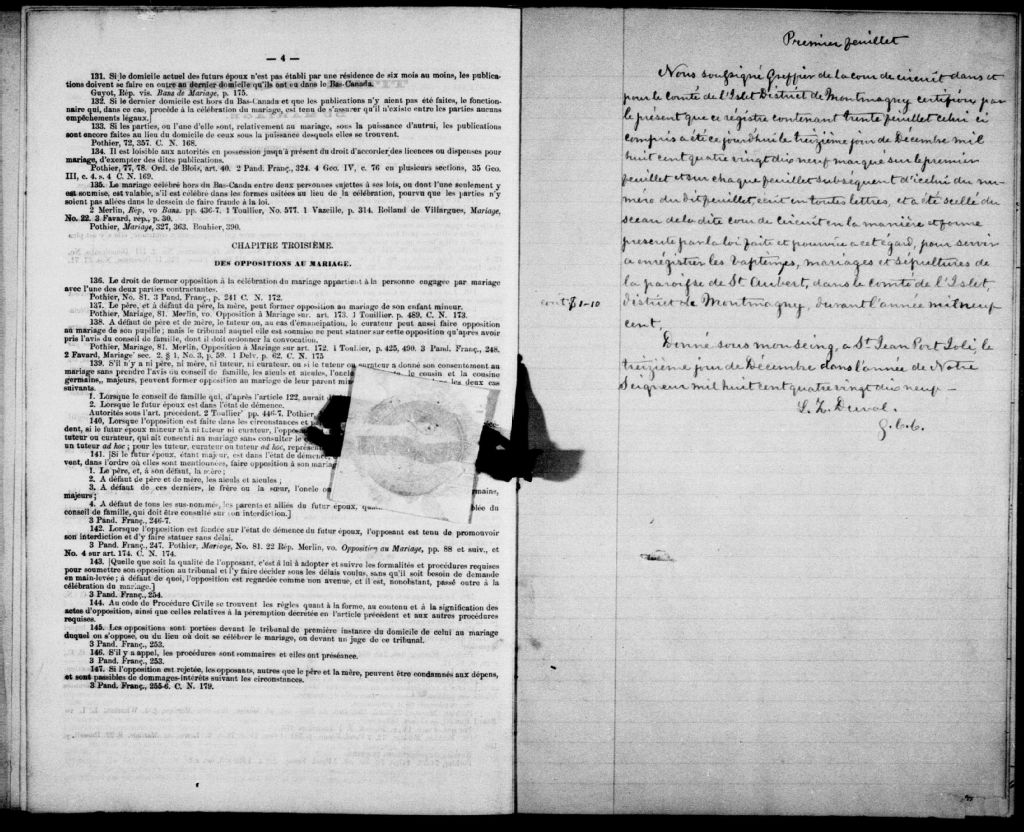 — 4 —
131. Si le domicile actuel des futurs époux n'est pas établi par une résidence de six mois au moins, les publica-
tions doivent se faire en outre au dernier domicile qu'ils ont eu dans le Bas-Canada.
Guyot, Rép. vis. Bans de Mariage, p. 175.
132. Si le dernier domicile est hors du Bas-Canada et que les publications n'y aient pas été faites, le fonction-
naire qui, dans ce cas, procède à la célébration du mariage, est tenu de s'assurer qu'il n'existe entre les parties aucun
empêchements légaux.]
133. Si les parties, ou l'une d'elle sont, relativement au mariage, sous la puissance d'autrui, les publications
sont encore faites au lieu du domicile de ceux sous la puissance desquels elles se trouvent.
Pothier, 72, 357. C. N. 168.
134. Il est loisible aux autorités en possession jusqu'à présent du droit d'accorder des licences ou dispenses pour
mariage, d'exempter des dites publications.
Pothier, 77, 78. Ord. de Blois, art. 40. 2 Pand. Franç., 324. 4 Geo. IV, c. 76 en plusieurs sections, 35 Geo.
III, c. 4. s. 4 C. N. 169.
135. Le mariage célébré hors du Bas-Canda entre deux personnes sujettes à ses lois, ou dont l'une seulement y
est soumise, est valable, s'il est célébré dans les formes usitées au lieu de la célébration, pourvu que les parties n'y
soient pas allées dans le dessein de faire fraude à la loi.
2 Merlin, Rép, vo Bans. pp. 436-7. 1 Toullier, No. 577. 1 Vazeille, p. 314. Rolland de Villargues, Mariage,
No. 22. 3 Favard, rep., p. 30.
Pothier, Mariage, 327, 363. Bouhier, 390.
CHAPITRE TROISIÈME.
DES OPPOSITIONS AU MARIAGE.
136. Le droit de former opposition à la célébration du mariage appartient à la personne engagée par mariage
avec l'une des deux parties contractantes.
Pothier, No. 81. 3 Pand. Franç., p. 241 C. N. 172.
137. Le père, et à défaut du père, la mère, peut former opposition au mariage de son enfant mineur.
Pothier, Mariage, 81. Merlin, vo. Opposition à Mariage sur art. 173. 1 Touillier. p. 489. C. N. 173.
138. A défaut de père et de mère, le tuteur ou, au cas d'émancipation, le curateur peut aussi faire opposition
au mariage de son pupille; mais le tribunal auquel elle est soumise ne peut statuer sur cette opposition qu'après avoir
pris l'avis du conseil de famille, dont il doit ordonner la convocation.
Pothier, Mariage, 81. Merlin, Opposition à Mariage sur art. 172. 1 Toullier, p. 425, 490. 3 Pand. Franç., 248.
2 Favard, Mariage' sec. 2. § 1, No. 3, p. 59. 1 Delv. p. 62. C. N. 175
139. S'il n'y a ni père, ni mère, ni tuteur, ni curateur, ou si le tuteur ou curateur a donné son consentement au
mariage sans prendre l'avis du conseil de famille, les aïeuls et aïeules, l'oncle le cousin et la cousine
germains, majeurs, peuvent former opposition au mariage de leur parent les deux cas
suivants.
1. Lorsque le conseil de famille qui, d'après l'article 122, aurait
2. Lorsque le futur époux est dans l'état de démence.
Autorités sous l'art. précédent. 2 Toullier' pp. 446-7. Pothier,
140. Lorsque l'opposition est faite dans les circonstances et
dent, si le futur époux mineur n'a ni tuteur ni curateur,
tuteur ou curateur, qui ait consenti au mariage sans consulter le
un tuteur ad hoc; pour les tuteur, curateur ou tuteur ad hoc,
141. [Si le futur époux, étant majeur, est dans l'état de démence,
vent, dans l'ordre où elles sont mentionnées, faire opposition à son mariage
1. Le père, et, à son défaut, la mère;
2. A défaut de père et de mère, les aïeuls et aïeules;
3. A défaut de ces derniers, le frère ou la sœur, l'oncle germains,
majeurs;
4. A défaut de tous les sus-nommés, les parents et alliés du futur époux, du
conseil de famille, qui doit être consulté sur son interdiction.]
3 Pand. Franç., 246-7.
142. Lorsque l'opposition est fondée sur l'état de démence du futur époux, l'opposant est tenu de promouvoir
son interdiction et d'y faire statuer sans délai.
3 Pand. Franç., 247. Pothier, Mariage, No. 81. 22 Rép. Merlin, vo. Opposition au Mariage, pp. 88 et suiv., et
No. 4 sur art. 174. C. N. 174.
143. [Quelle que soit la qualité de l'opposant, c'est à lui à adopter et suivre les formalités et procédures requises
pour soumettre son opposition au tribunal et l'y faire décider sous les délais voulus, sans qu'il soit besoin de demande
en main-levée; à défaut de quoi, l'opposition est regardée comme non avenue, et il est, nonobstant, passé outre à la
célébration du mariage.]
3 Pand. Franç., 254.
144. Au code de Procédure Civile se trouvent les règles quant à la forme, au contenu et à la signification des
actes d'opposition, ainsi que celles relatives à la péremption décrétée en l'article précédent et aux autres procédures
requises.
145. Les oppositions sont portées devant le tribunal de première instance du domicile de celui au mariage
duquel on s'oppose, ou du lieu où doit se célébrer le mariage, ou devant un juge de ce tribunal.
3 Pand. Franç., 253.
146. S'il y a appel, les procédures sont sommaires et elles ont préséance.
3 Pand. Franç., 253.
147. Si l'opposition est rejetée, les opposants, autres que le père et la mère, peuvent être condamnés aux dépens,
et sont passibles de dommages-intérêts suivant les circonstances.
3 Pand. Franç., 255-6. C. N. 179.
Premier feuillet
Nous soussigné Greffier de la cour de circuit dans et
pour le comté de l'Islet District de Montmagny certifions par
le présent que ce régistre contenant trente feuillet celui ci
compris a été ce jourdhui le treizième jour de Décembre mil
huit cent quatre vingt dix neuf marqué sur le premier
feuillet et sur chaque feuillet subséquent d'icelui du nu-
mero du dit feuillet, écrit en toutes lettres, et a été scellé du
sceau de la dite cour de Circuit en la manière et forme
prescrite par la loi faite et pourvue a cet égard, pour servir
a enrégistrer les baptêmes, mariages et sépultures de
la paroisse de St Aubert, dans le comté de l'Islet,
district de Montmagny, durant l'année mil neuf
cent.
cout $1-10
Donné sous mon seing, a St Jean Port Joli, le
treizième jour de Décembre dans l'année de Notre
Seigneur mil huit cent quatre vingt dix neuf —
L. Z. Duval.
g. C. C.